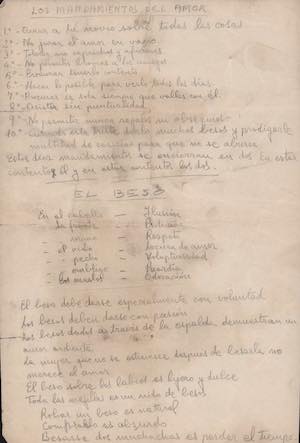 LOS MANDAMIENTOS DEL AMOR
1º- Amar a tu novio sobre todas las cosas
2º- No jurar el amor en vano
3º-
4º- No permitir
5º- Procurar tenerlo contento
6º- Hacer lo posible para verlo todos los dias.
7º- Procurar es sola siempre que valles con él.
8º- con puntualidad.
9º- No permitir nunca regalos ni obsequios
10º- Cuando este triste darle muchos besos y prodigarle
multitud de caricias para que no se aburra
Estos diez mandamientos se encierran en dos En estar
contentos él y en estar contentos los dos.
EL BESO
En el cabello — Ilusión
" la frente —
" — Respeto
" el — Locura de amor
" pecho — Voluptuosidad
" — Guardia
" las manos —
El beso debe darse especialmente con voluntad
Los besos deben darse con pasión
Los besos dados a través de la espalda demuestran un
amor ardiente
La mujer que no se estremece despues de besarla no
merece el amor
El beso sobre los labios es lijero y dulce
Todas las son un nido de besos
Robar un beso es natural
Comprarlo es absurdo
Besarse dos muchachas es perder el tiempo